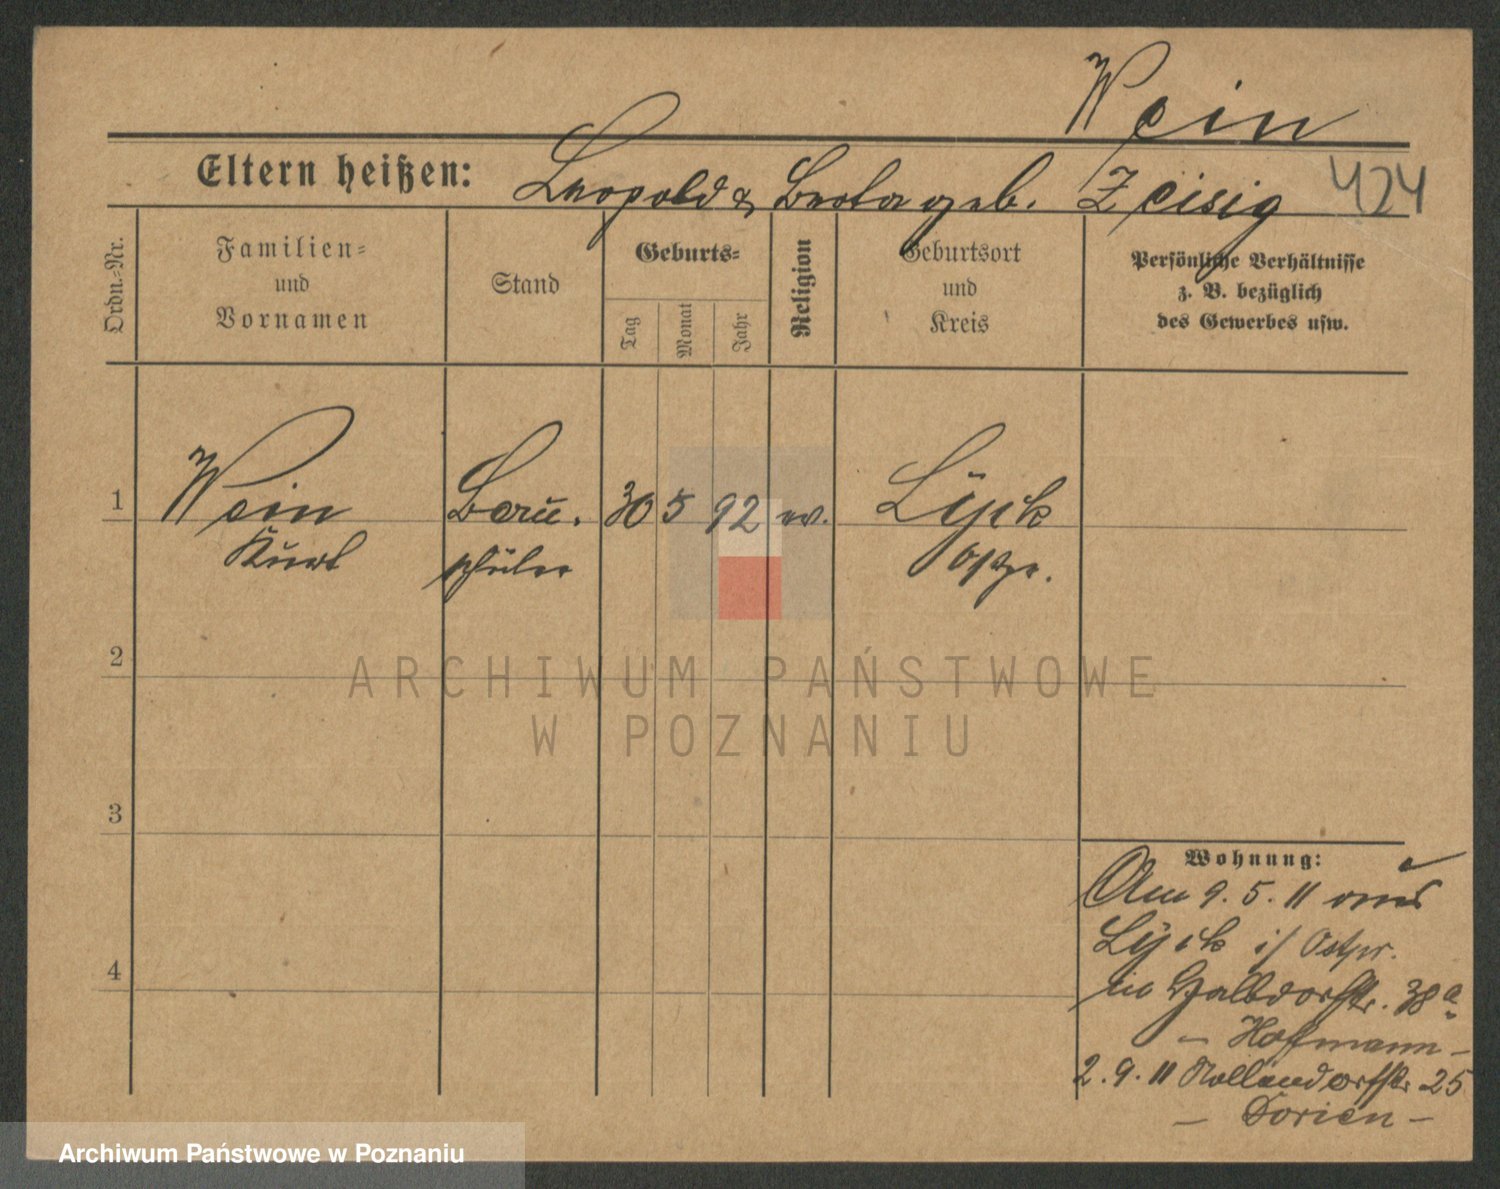 Wein
Eltern heißen: Leopold & Berta geb. Zeisig 424
Ordn.-Nr.
Familien-
und
Vornamen
Stand
Geburts-
Tag
Monat
Jahr
Religion
Geburtsort
und
Kreis
Persönliche Verhältnisse
z. B. bezüglich
des Gewerbes usw.
1 Wein Bau- 30 5 92 ev. Lyck
Kurt schüler Ostpr.
2
3
4
Wohnung:
Am 9.5.11 aus
Lyck i/ Ostpr.
in Halbdorfstr. 38a
- Hoffmann -
2.9.11 Nollendorfstr. 25
- Dorien -
ARCHIWUM PAŃSTWOWE
W POZNANIU
Archiwum Państwowe w Poznaniu